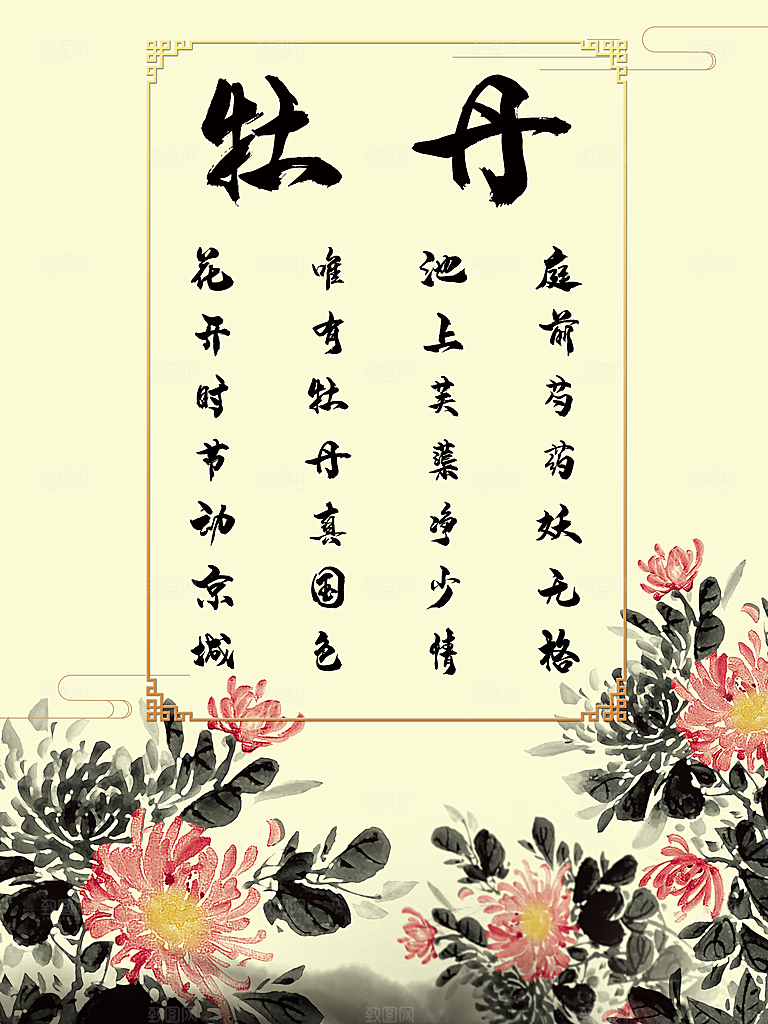 牡丹
庭前芍药妖无格
池上芙蕖净少情
唯有牡丹真国色
花开时节动京城